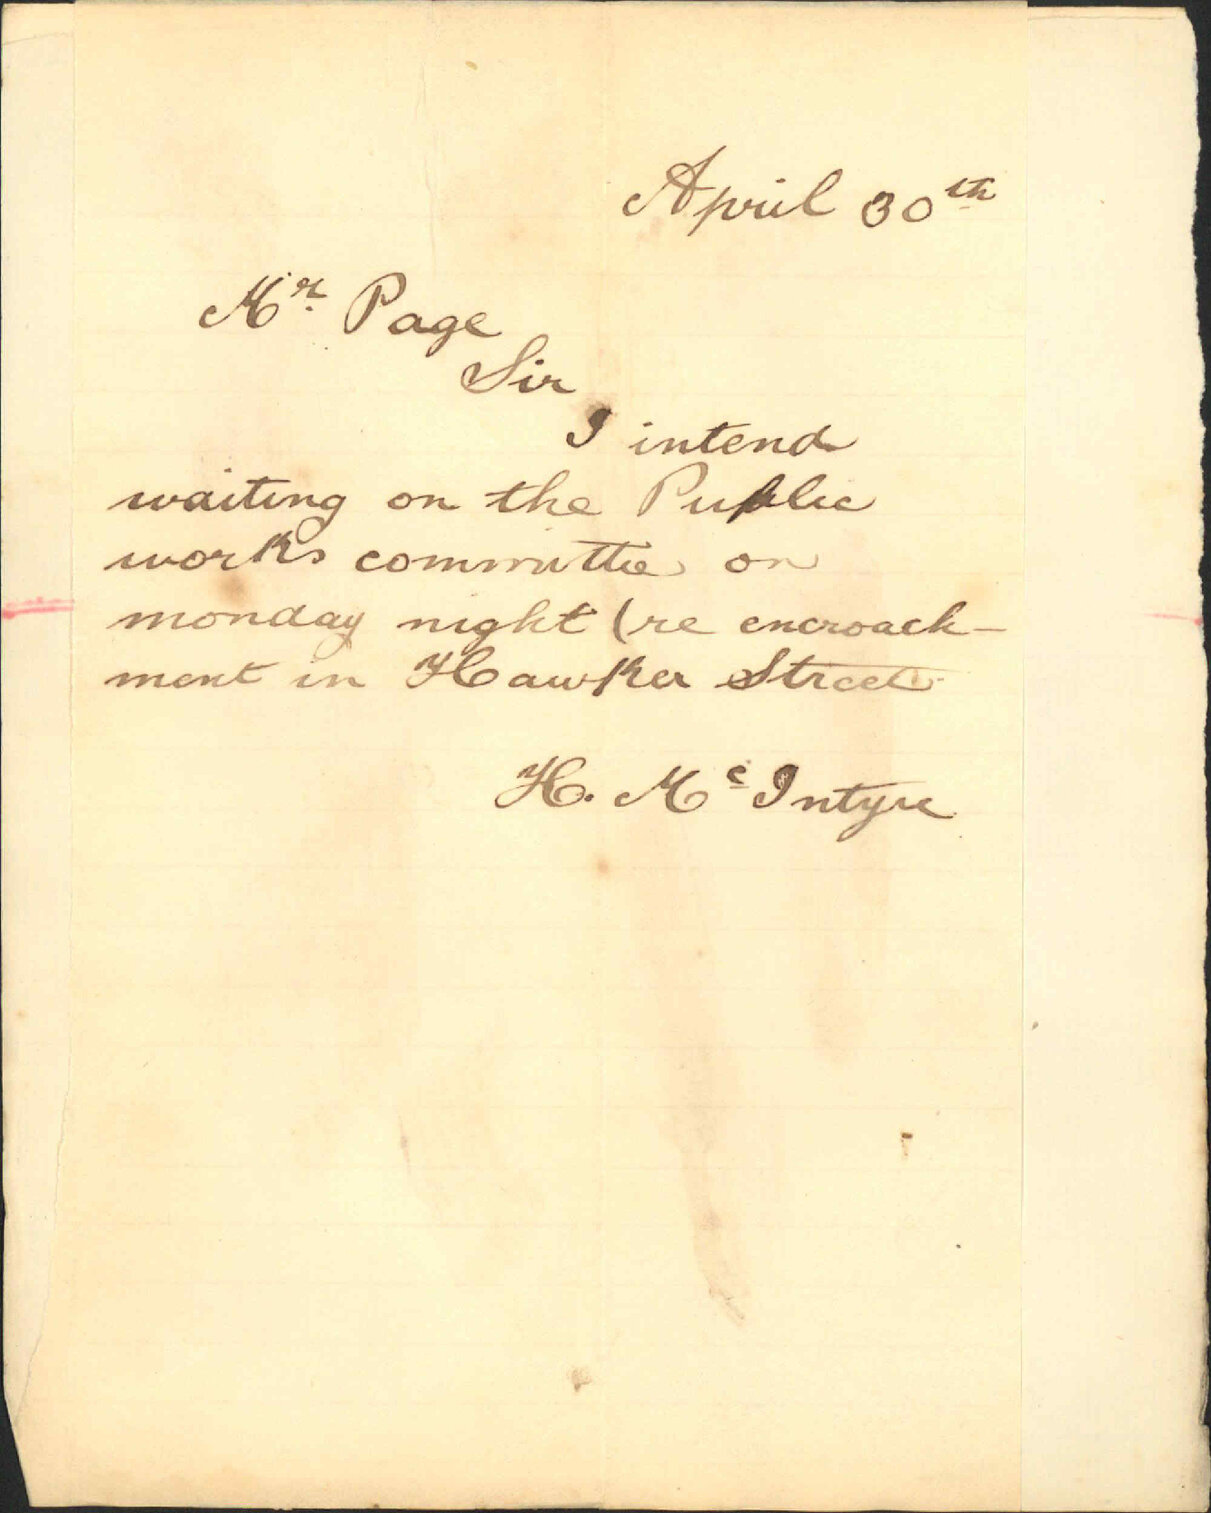 April 30th
Mr. Page
Sir
I intend
waiting on the Public
works committee on
monday night (re encroach-
ment in Hawker Street
H. Mc Intyre